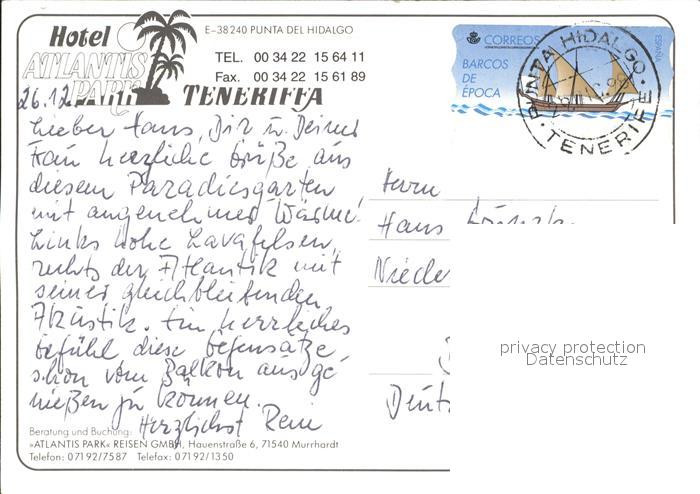 Hotel
ATLANTIS
PARK
TENERIFFA
E-38240 PUNTA DEL HIDALGO
TEL. 00 34 22 15 64 11
Fax. 00 34 22 15 61 89
26.12.
Lieber Hans, Dir u. Deiner
Frau herzliche Grüße aus
diesem Paradiesgarten
mit angenehmer Wärme!
Links hohe Lavafelsen,
rechts der Atlantik mit
seiner gleichbleibenden
Akustik. Ein herrliches
Gefühl diese Gegensätze
schon vom Balkon aus ge-
nießen zu können.
Herzlichst
CORREOS
ESPAÑA
BARCOS
DE
ÉPOCA
PUNTA HIDALGO
TENERIFE
Herrn
Hans
Niede
Deut
privacy protection
Datenschutz
Beratung und Buchung:
»ATLANTIS PARK« REISEN GMBH, Hauenstraße 6, 71540 Murrhardt
Telefon: 07192/7587 Telefax: 07192/1350